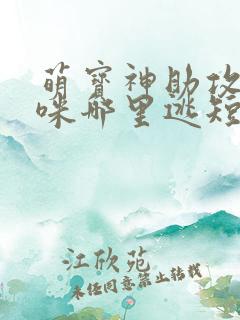 萌宝神助攻
咪哪里逃短
江欣苑
未经同意禁止转载